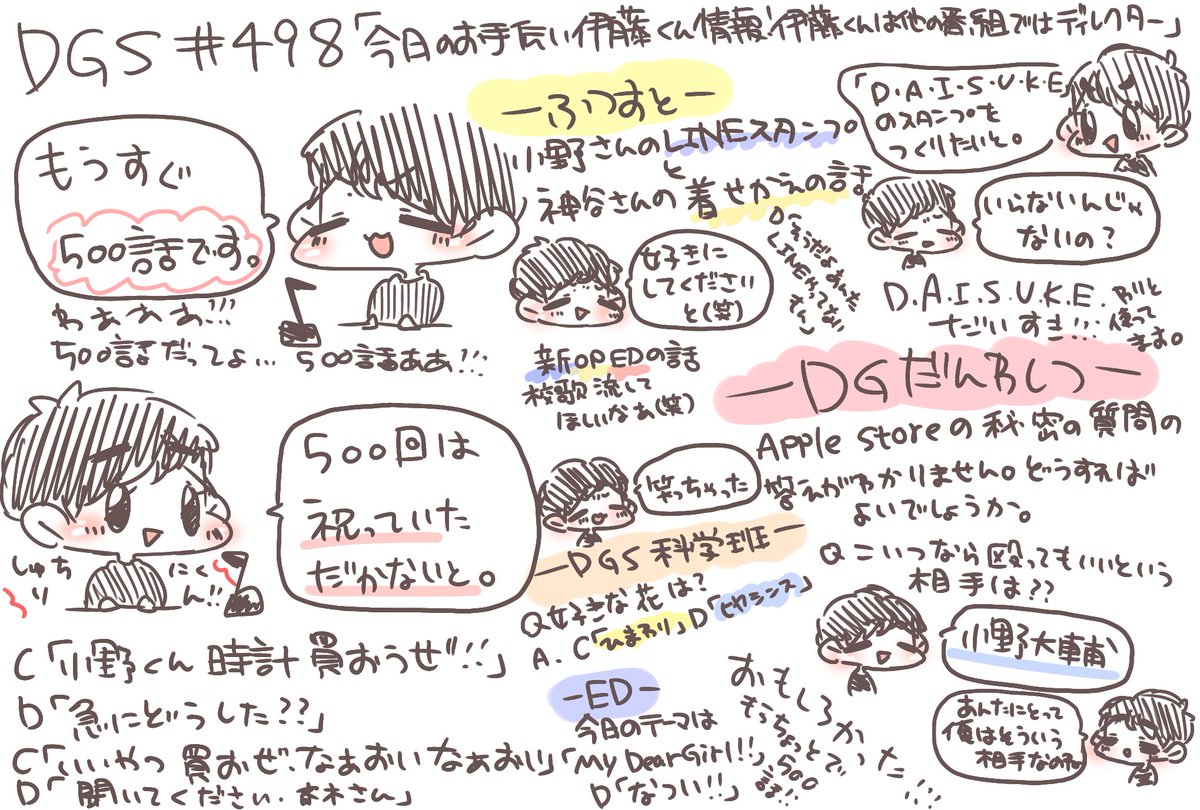 DGS #498「今日のお手伝い伊藤くん情報!伊藤くんは他の番組ではディレクター」
もうすぐ
500話です。
わぁぁぁ!!!
500話だってよ… 500話ああ!!!
500回は
祝っていた
だかないと。
しゅち
にく
り
ん!!
C「小野くん時計買おうぜ!!」
D「急にどうした??」
C「いいやつ買おぜ、なぁおいなぁおい」
D「聞いてください、さん」
ーふつおとー
小野さんのLINEスタンプ
と
神谷さんの着せかえの話
お好きに
してください
と(笑)
そうだよあんた
LINEやってない
新OP EDの話
校歌流して
ほしいなあ(笑)
笑っちゃった
ーDGS科学班ー
Q お好きな花は?
A. C「ひまわり」D「ヒヤシンス」
ーEDー
今日のテーマは
「My Dear Girl!!」
D「なつい!!」
おもしろかった!!!
もうちょっとで
500話!!
「D・A・I・S・U・K・E
のスタンプを
つくりたいと。
いらないんじゃ
ないの?
D.A.I.S.U.K.E.
だいすき!!!
わりと
使って
ます。
ーDGだんわしつー
Apple storeの秘密の質問の
答えがわかりません。どうすれば
よいでしょうか。
Q こいつなら殴ってもいいという
相手は??
小野大輔
あんたにとって
俺はそういう
相手なのね